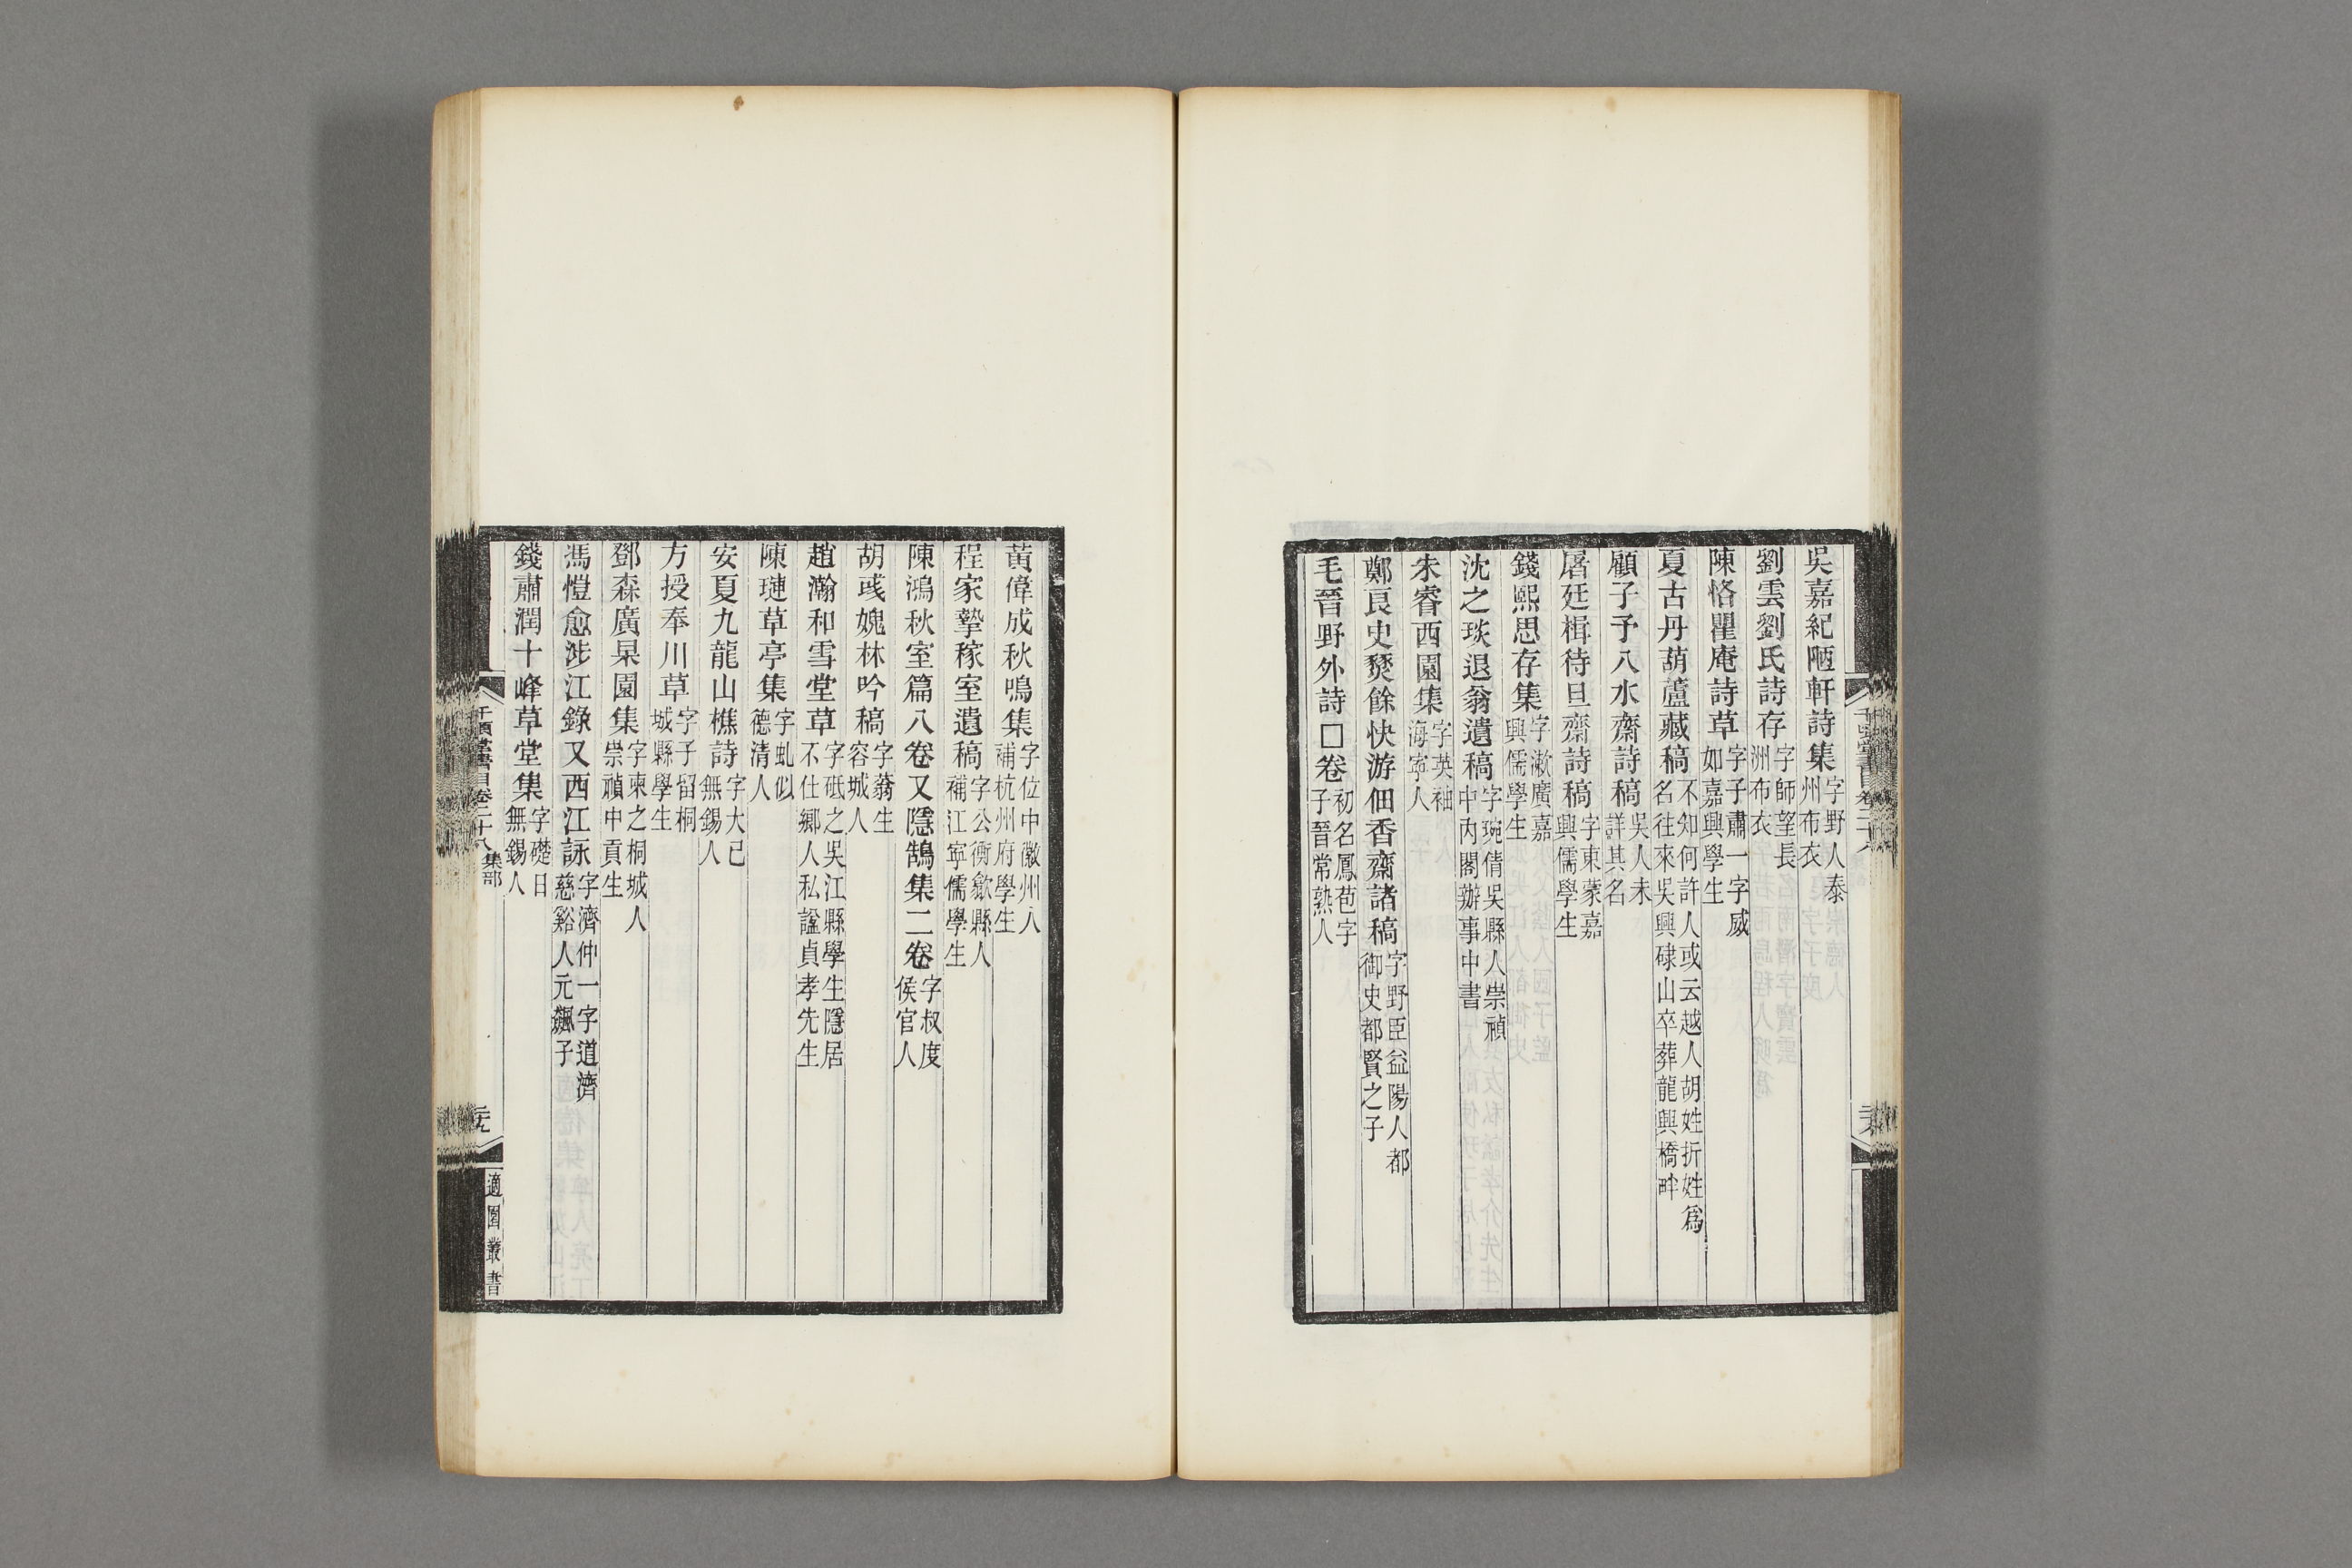 吳嘉紀陋軒詩集字野人泰州布衣
劉雲劉氏詩存字師望長洲布衣
陳恪瞿庵詩草字子肅一字威如嘉興學生
夏古丹葫蘆藏稿不知何許人或云越人胡姓折姓爲名往來吳興碌山卒葬龍興橋畔
顧子予八水齋詩稿吳人未詳其名
屠廷楫待旦齋詩稿字東蒙嘉興儒學生
錢熙思存集字漱廣嘉興儒學生
沈之琰退翁遺稿字琬倩吳縣人崇禎中內閣辦事中書
朱睿西園集字英袖海寧人
鄭良史燹餘快游佃香齋諸稿字野臣益陽人都御史都賢之子
毛晉野外詩□卷初名鳳苞字子晉常熟人
黃偉成秋鳴集字位中徽州人補杭州府學生
程家摯稼室遺稿字公衡歙縣人補江寧儒學生
陳鴻秋室篇八卷又隱鵠集二卷字叔度侯官人
胡彧媿林吟稿字蓊生容城人
趙瀚和雪堂草字砥之吳江縣學生隱居不仕鄉人私謚貞孝先生
陳璉草亭集字虬似德清人
安夏九龍山樵詩字大己無錫人
方授奉川草字子留桐城縣學生
鄧森廣杲園集字東之桐城人崇禎中貢生
馮愷愈涉江錄又西江詠字濟仲一字道濟慈谿人元飆子
錢肅潤十峰草堂集字礎日無錫人
千頃堂書目卷二十八 集部
二十九
適園叢書